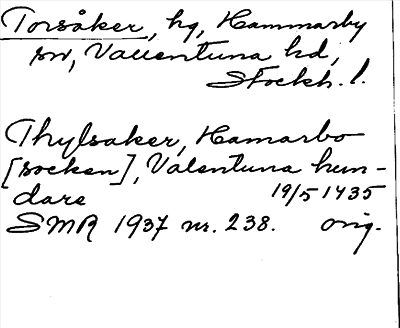 Torsåker, hg, Hammarby
sn, Vallentuna hd,
Stockh. l.
Thylsaker, Hamarbo
[socken], Valentuna hun-
dare 19/5 1435
SMR 1937 nr. 238. orig.